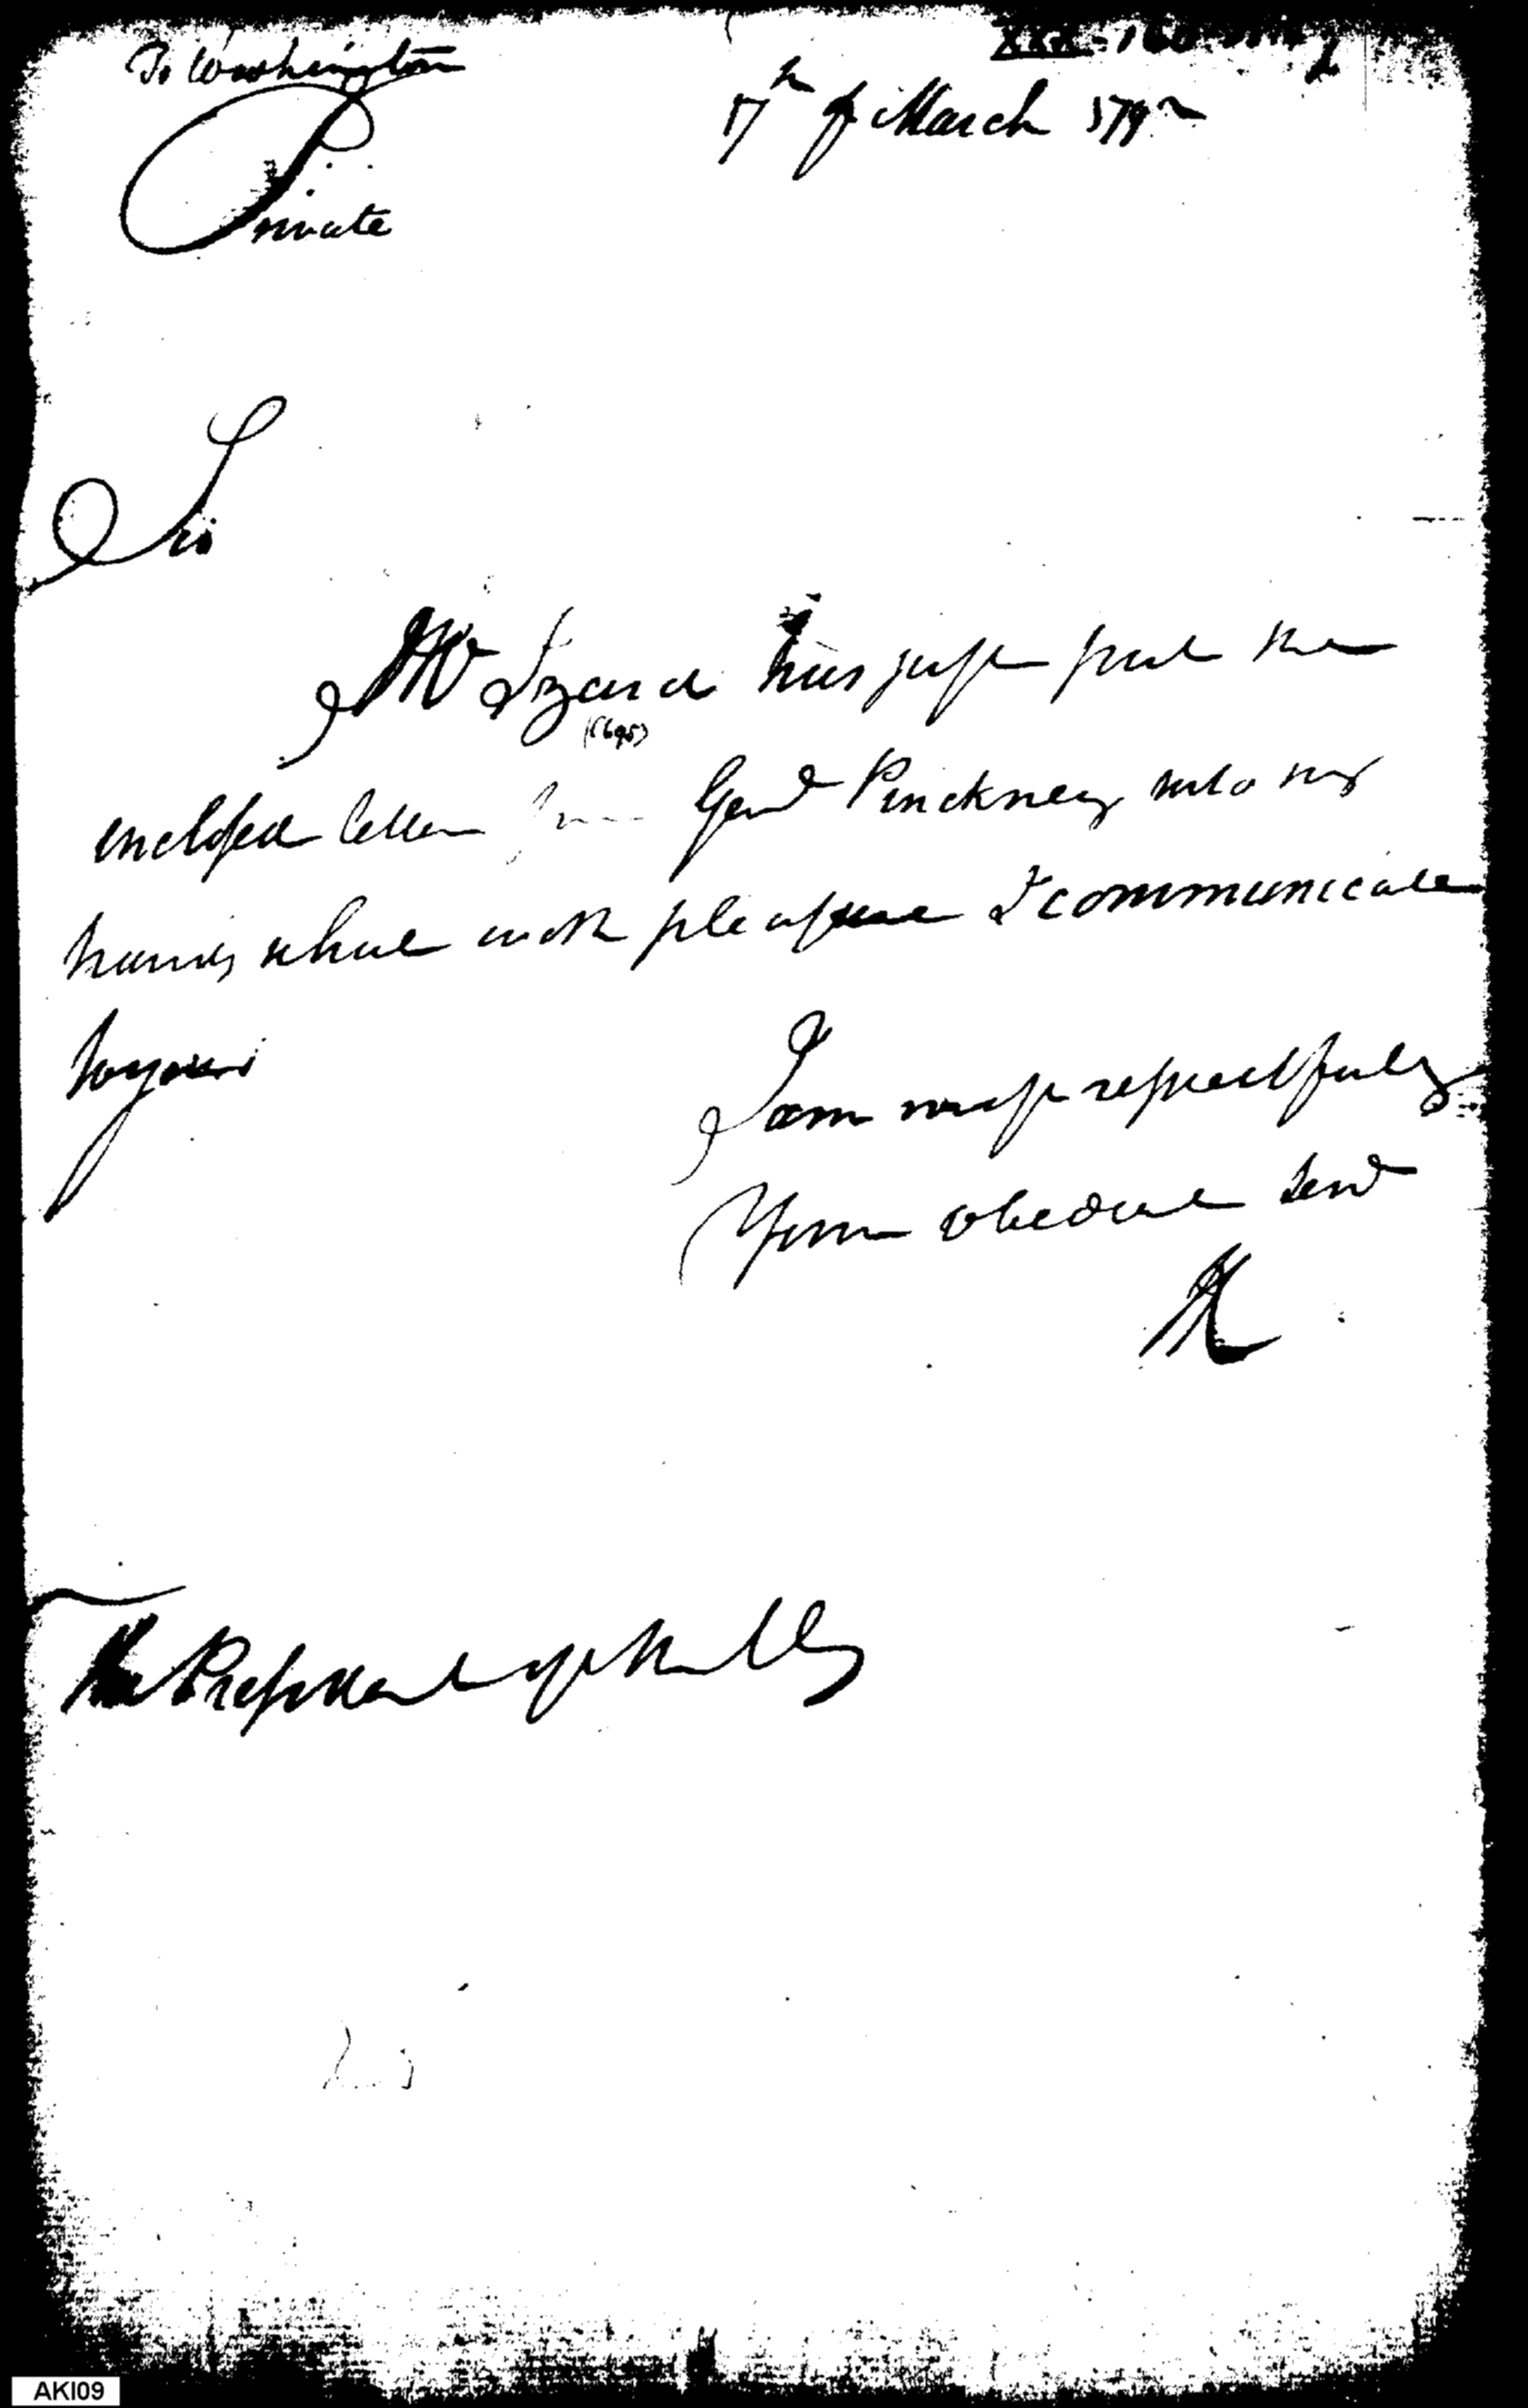 To Washington
17h of March 179
Private
Sir
Mr Izard has just put the
inclosed letter from Genl Pinckney into my
hands what with pleasure I communicate
to you
I am most respectfully
Your obedient Servt
The President of the U S
AKI09